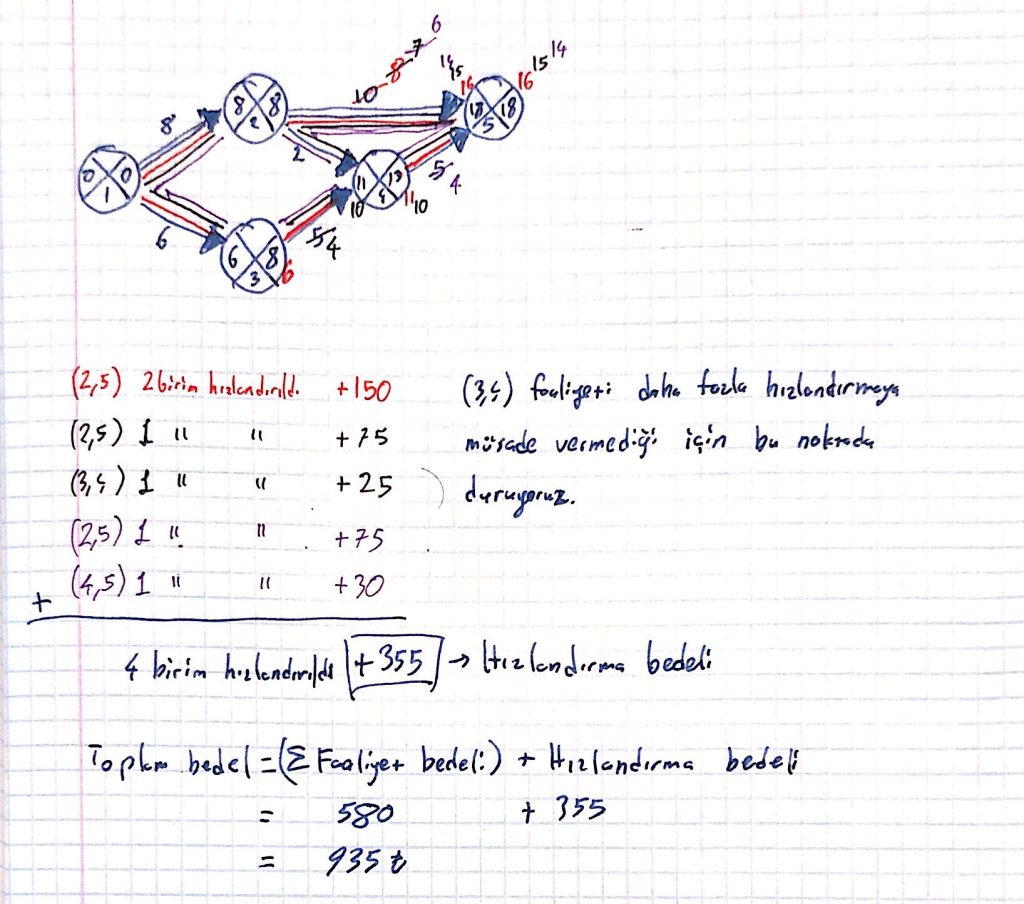 6
7
14
8
14 15
15 14
10
16
16
8
8 8
18 18
2
5
2
0 0
11 13
5 4
1
4
10
11 10
6
6 8
5 4
3
6
(2,5) 2 birim hızlandırıld. +150
(2,5) 1 " " +75
(3,4) 1 " " +25
(2,5) 1 " " +75
(4,5) 1 " " +30
+
(3,4) faaliyeti daha fazla hızlandırmaya
müsade vermediği için bu noktada
duruyoruz.
4 birim hızlandırıldı +355 → Hızlandırma bedeli
Toplam bedel = (Σ Faaliyet bedeli) + Hızlandırma bedeli
= 580 + 355
= 935 ₺